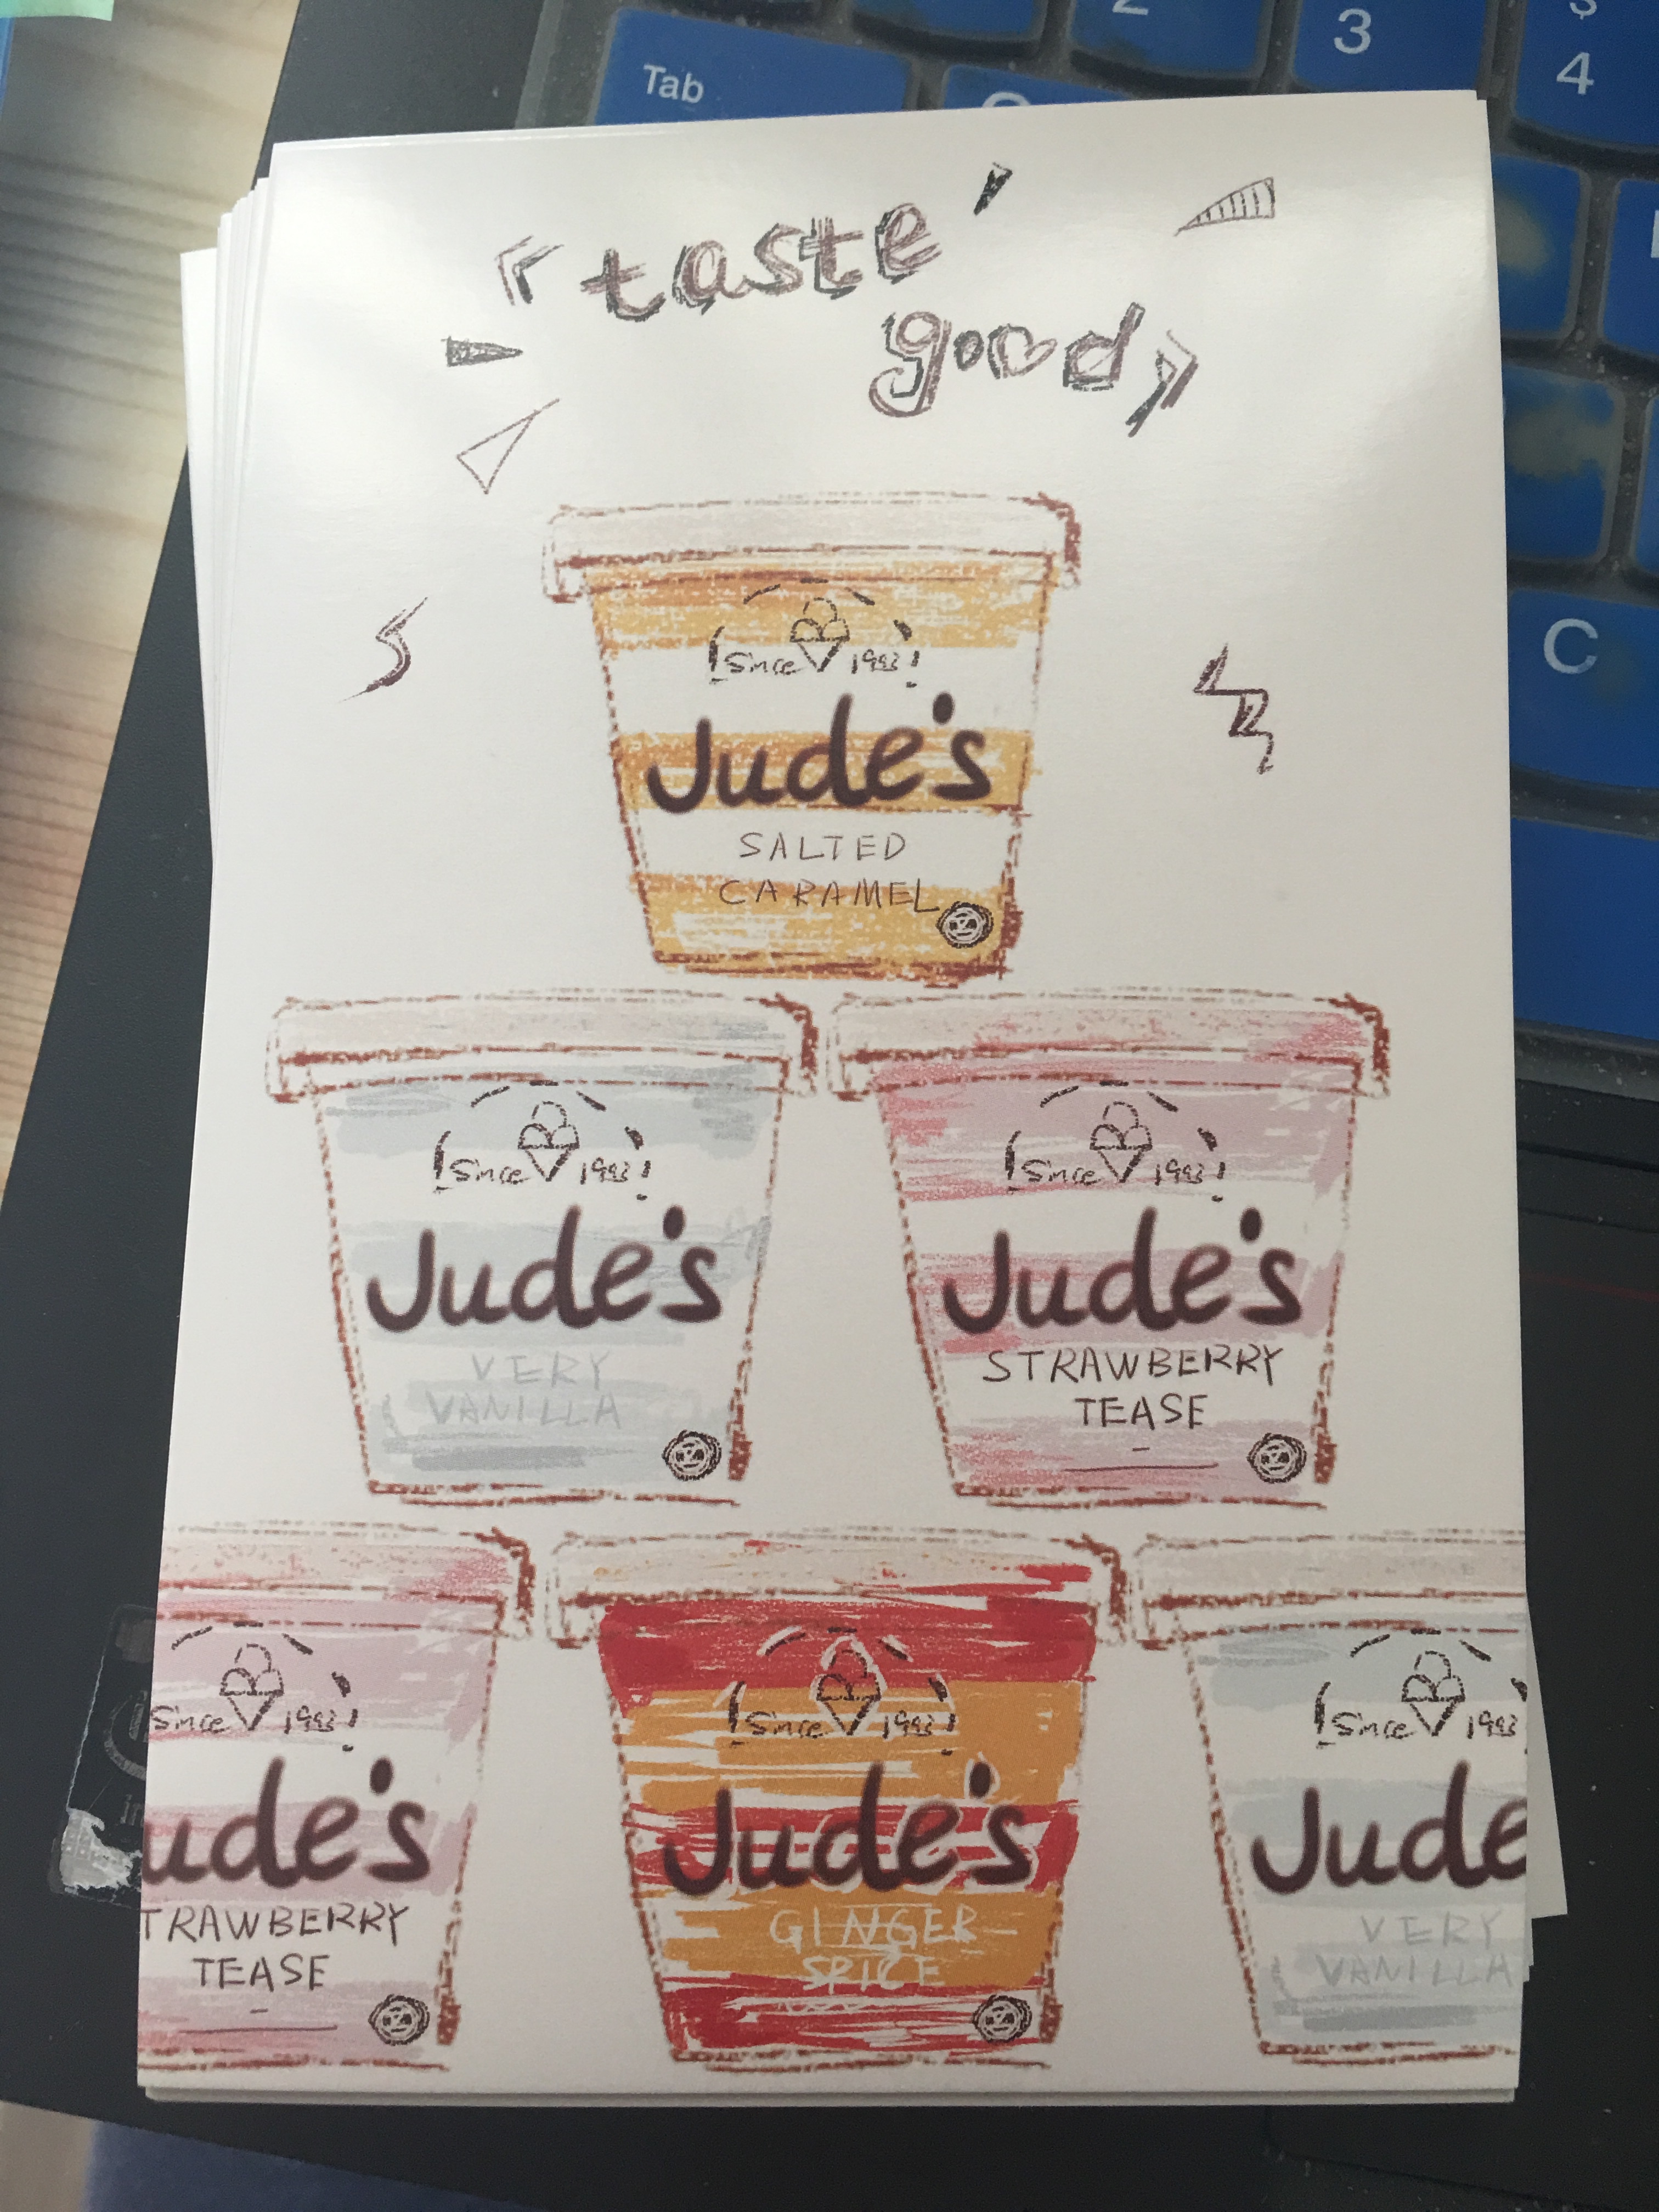 Tab
2
3
$
4
C
« taste '
good »
Since 1993
Jude's
SALTED
CARAMEL
Since 1993
Jude's
VERY
VANILLA
Since 1993
Jude's
STRAWBERRY
TEASE
Since 1993
ude's
TRAWBERRY
TEASE
Since 1993
Jude's
GINGER
SPICE
Since 1993
Jude
VERY
VANILLA